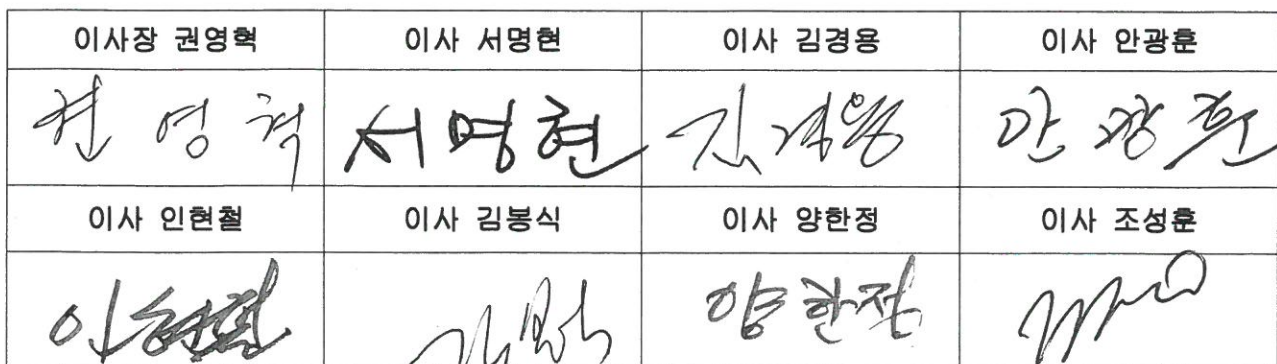 이사장 권영혁 이사 서명현 이사 김경용 이사 안광훈
권 영 혁 서명현 김경용 안광훈
이사 인현철 이사 김봉식 이사 양한정 이사 조성훈
인현철 양한정